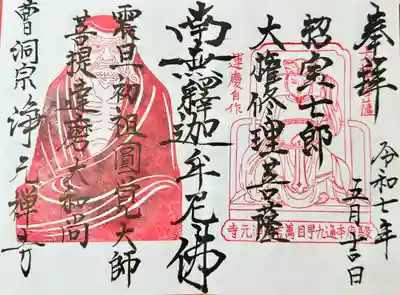 奉拝
令和七年
五月吉日
招宝七郎
大権修理菩薩
運慶自作
南無釋迦牟尼佛
震旦初祖圓覚大師
菩提達磨大和尚
曹洞宗 浄元禅寺